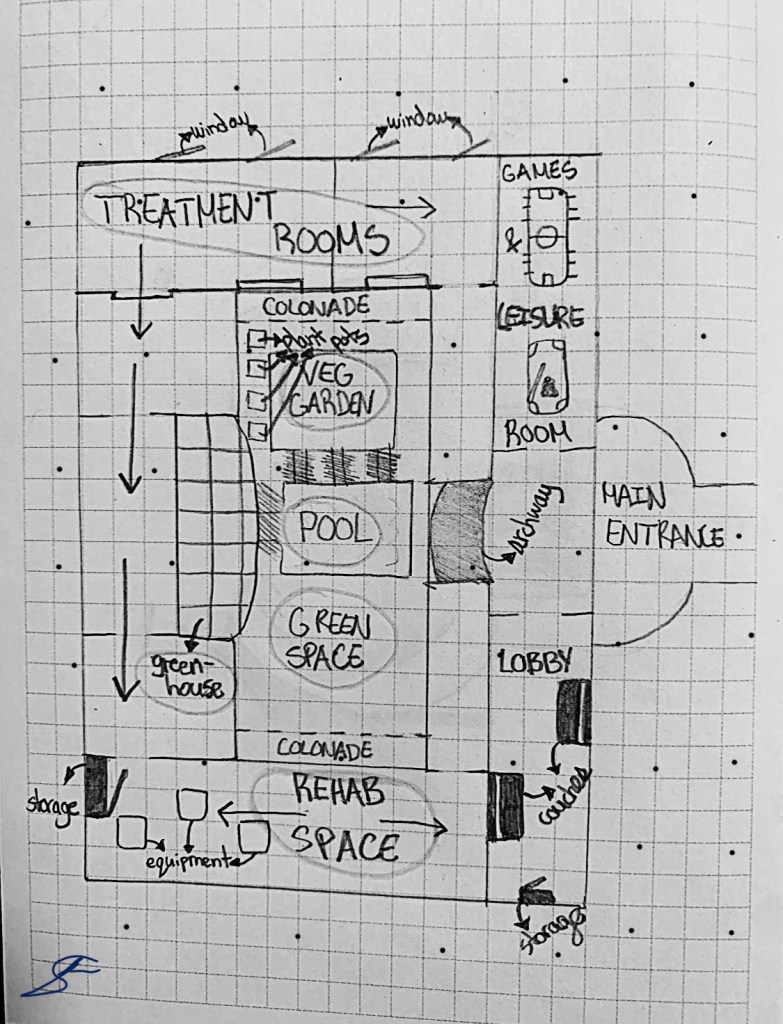 window
window
GAMES
&
LEISURE
ROOM
TREATMENT
ROOMS
COLONADE
plant pots
VEG
GARDEN
POOL
archway
MAIN
ENTRANCE
GREEN
SPACE
green-
house
LOBBY
couches
COLONADE
REHAB
SPACE
storage
equipment
storage